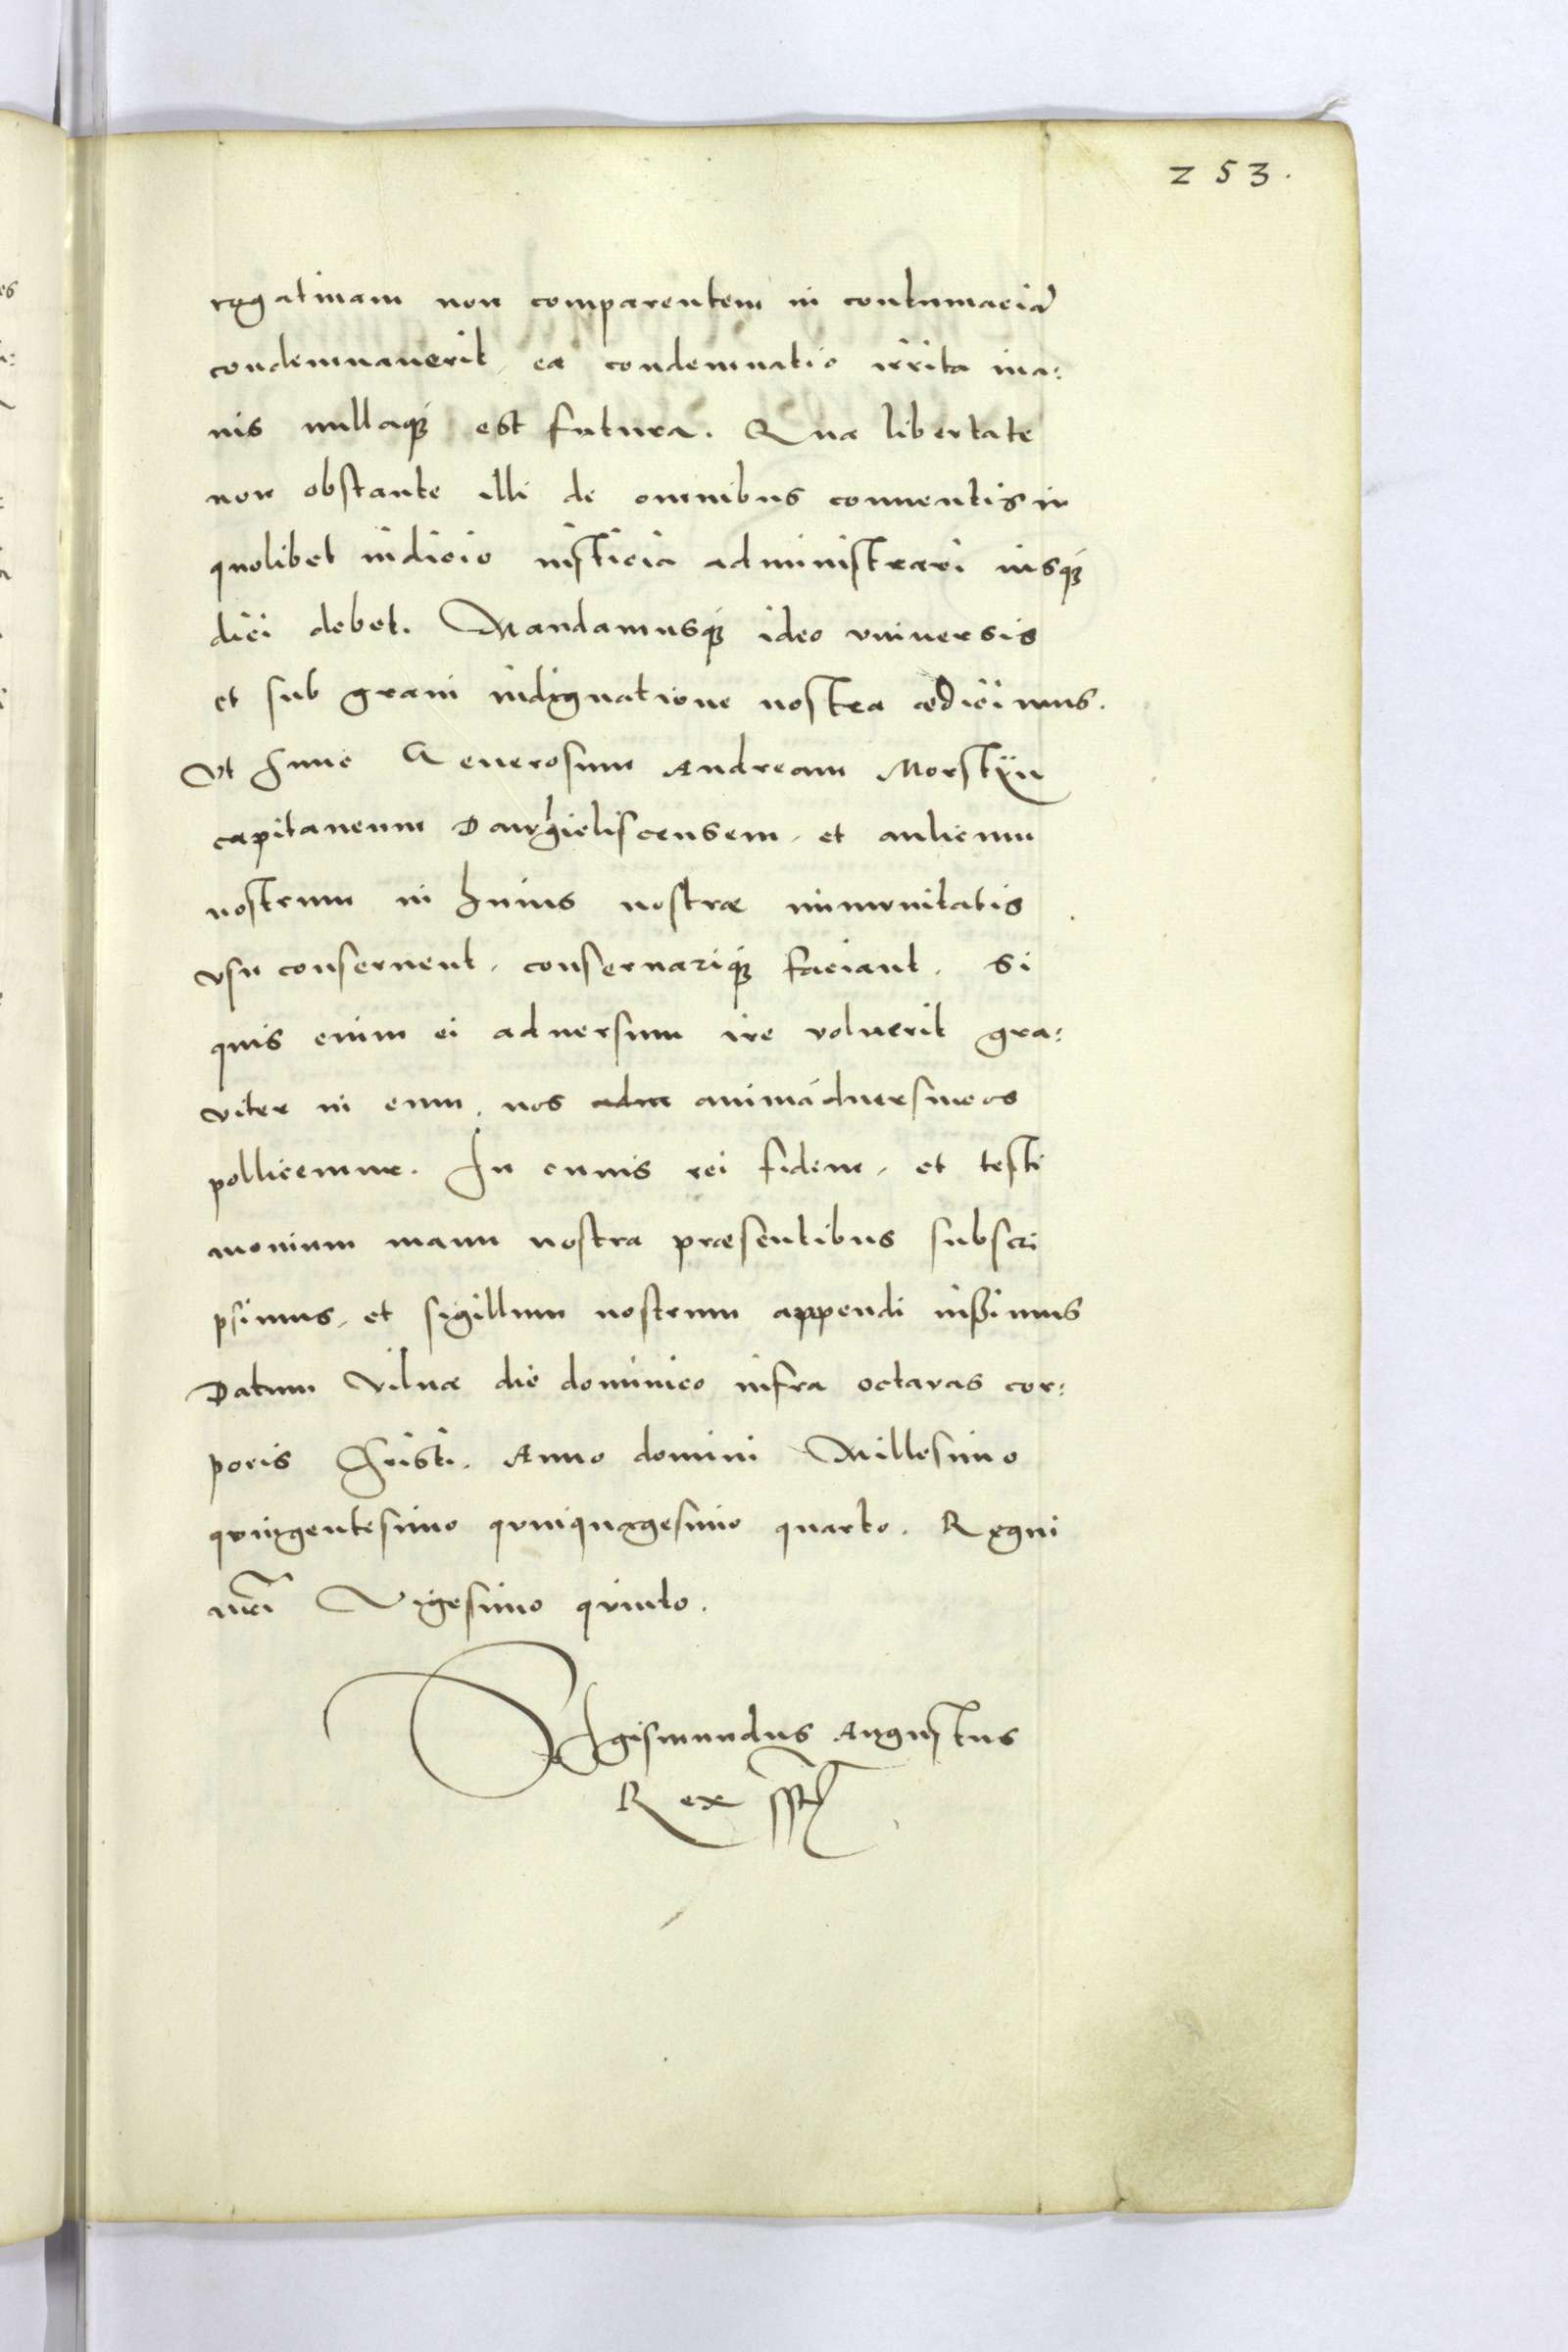 253.
rogatiuam non comparentem in contumaciã
condemnauerit, ea condemnatio irrita ina:
nis nullaqꝫ est futura. Qua libertate
non obstante illi de omnibus conuentis in
quolibet iudicio iusticia administrari iusqꝫ
dici debet. Mandamusqꝫ ideo vniuersis
et sub graui indignatione nostra ædicimus.
Vt hunc Generosum Andream Morstÿn
capitaneum Dawgieliscensem, et aulicum
nostrum in huius nostræ immunitatis
vsu conseruent, conseruariqꝫ faciant. Si
quis enim ei aduersum ire voluerit gra:
viter in eum, nos animáduersuros
pollicemur. In cuius rei fidem, et testi
monium manu nostra præsentibus subscri
psimus, et sigillum nostrum appendi iußimus
Datum Vilnæ die dominico infra octavas cor:
poris Christi. Anno domini Millesimo
quingentesimo quinquagesimo quarto. Regni
nrĩ Vigesimo quinto.
Sigismundus Augustus
Rex